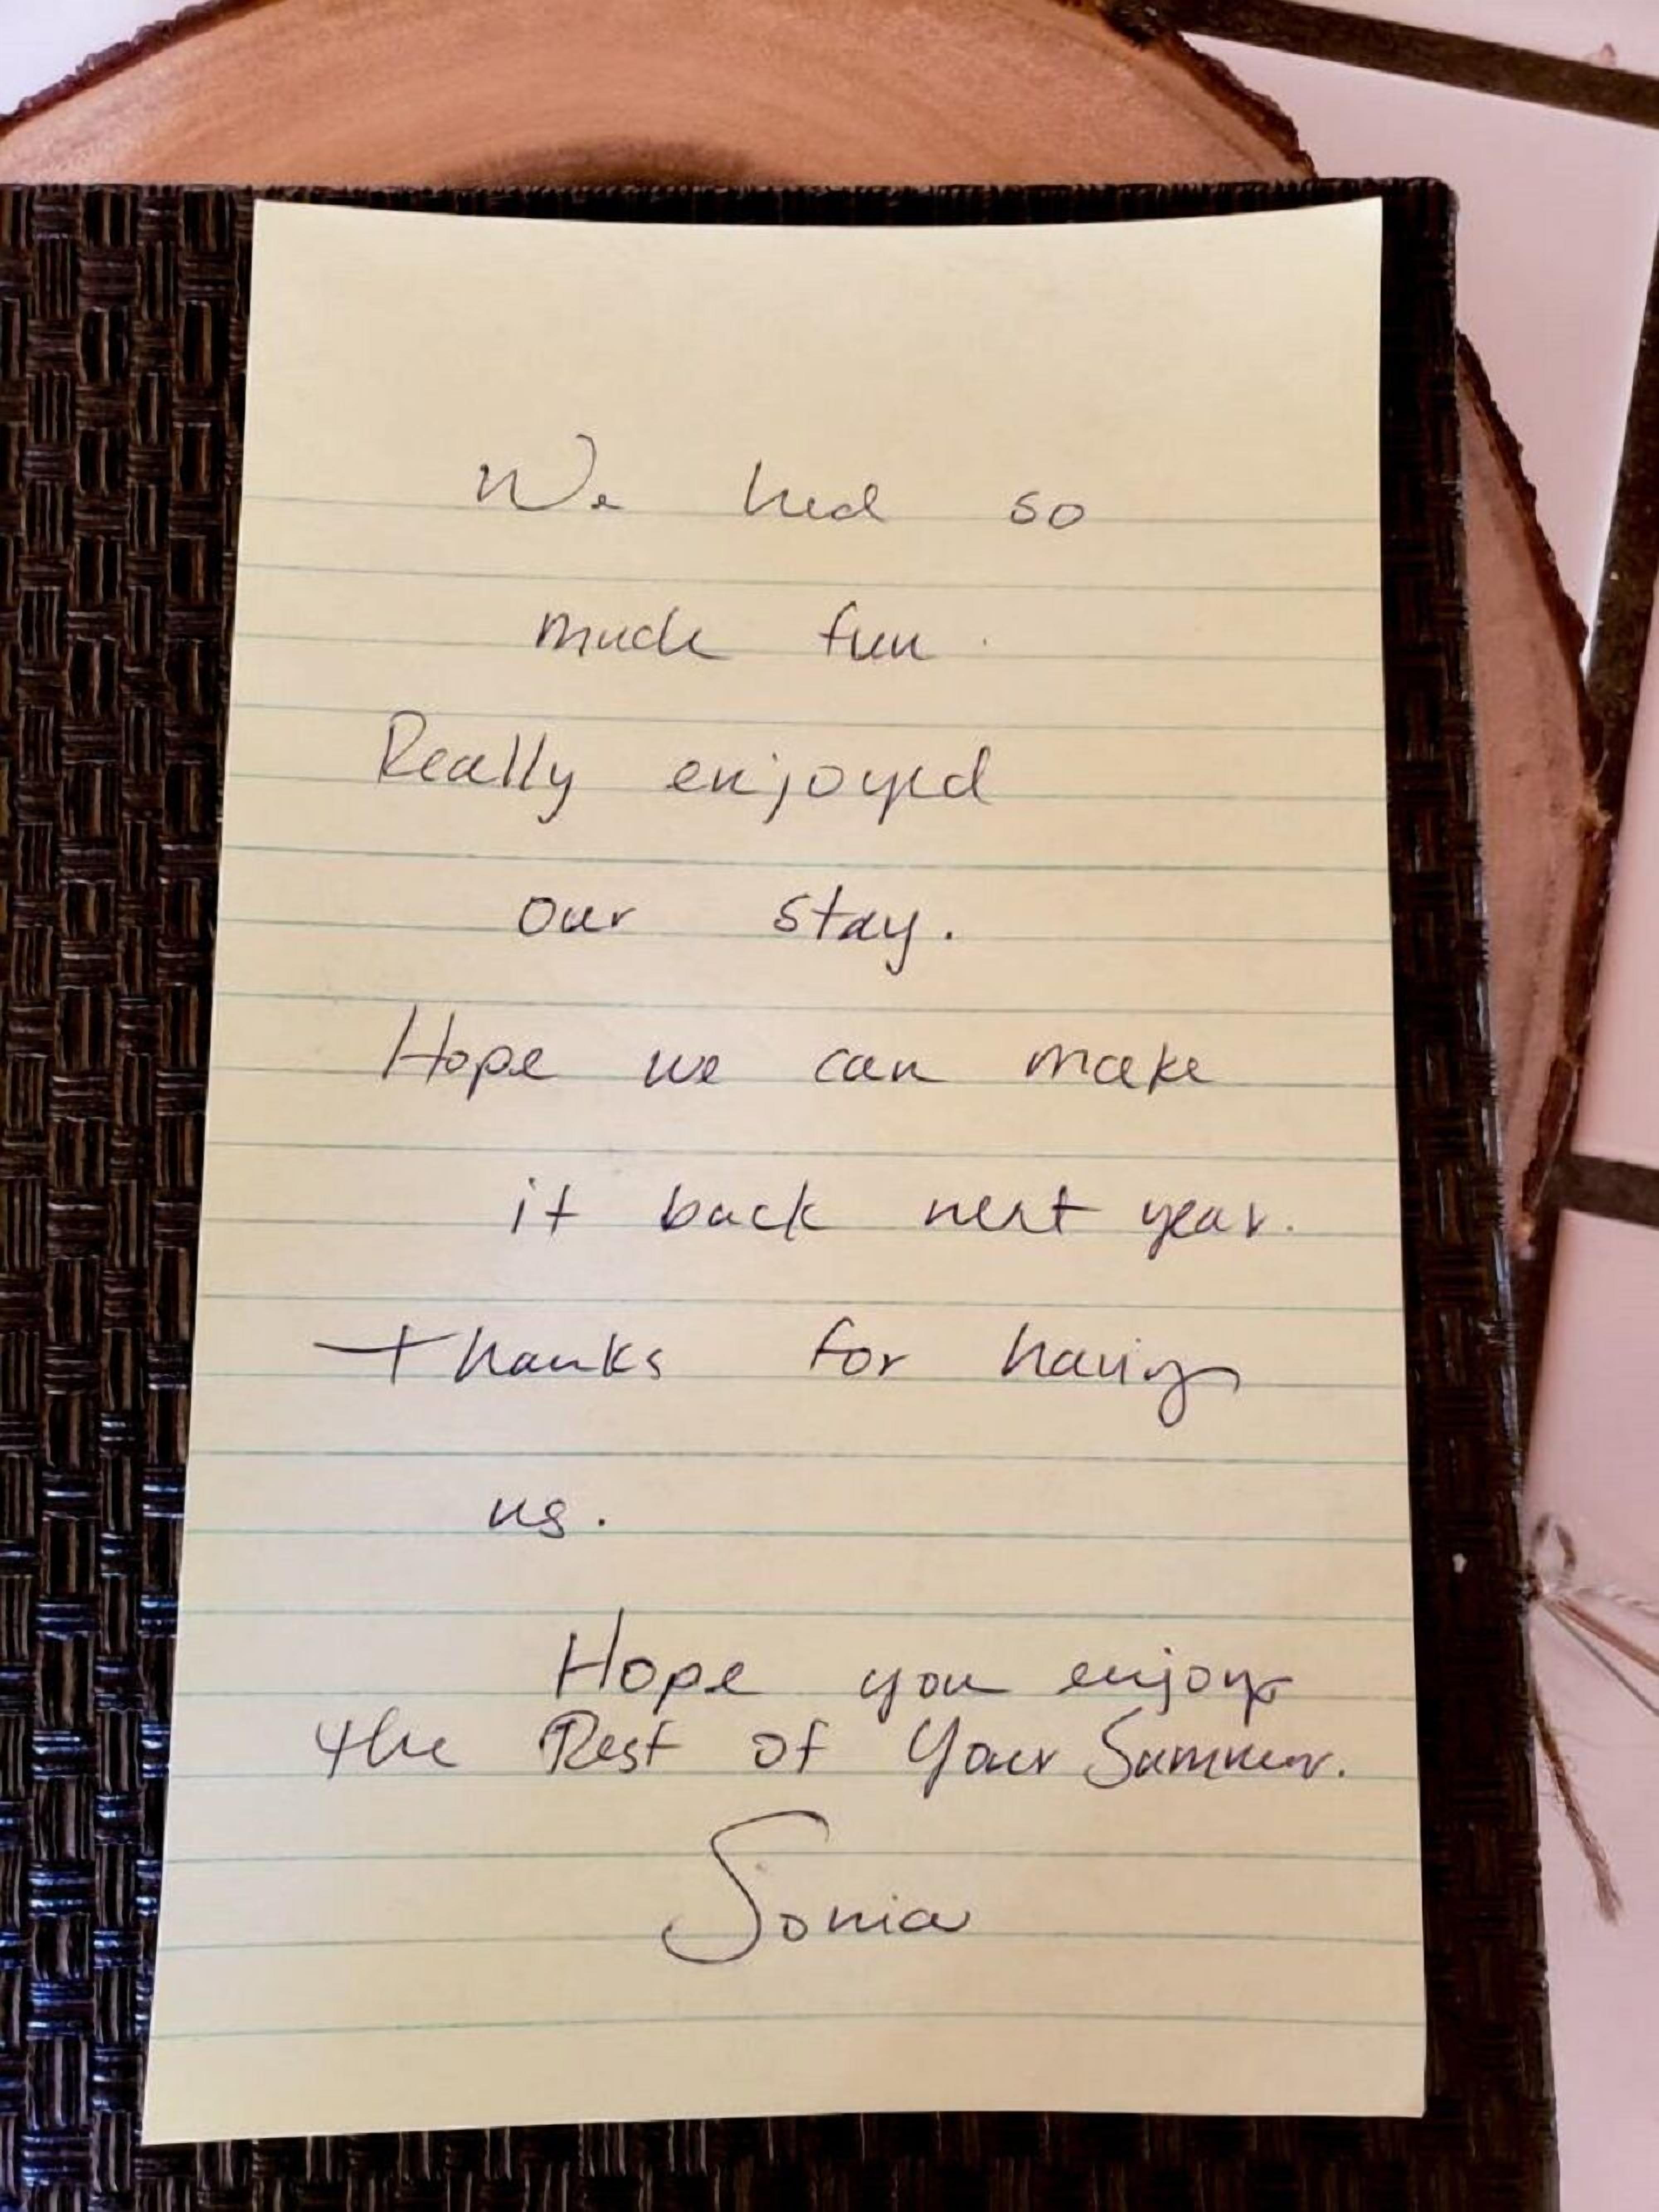 We had so
much fun.
Really enjoyed
our stay.
Hope we can make
it back next year.
Thanks for having
us.
Hope you enjoy
the Rest of Your Summer.
Sonia